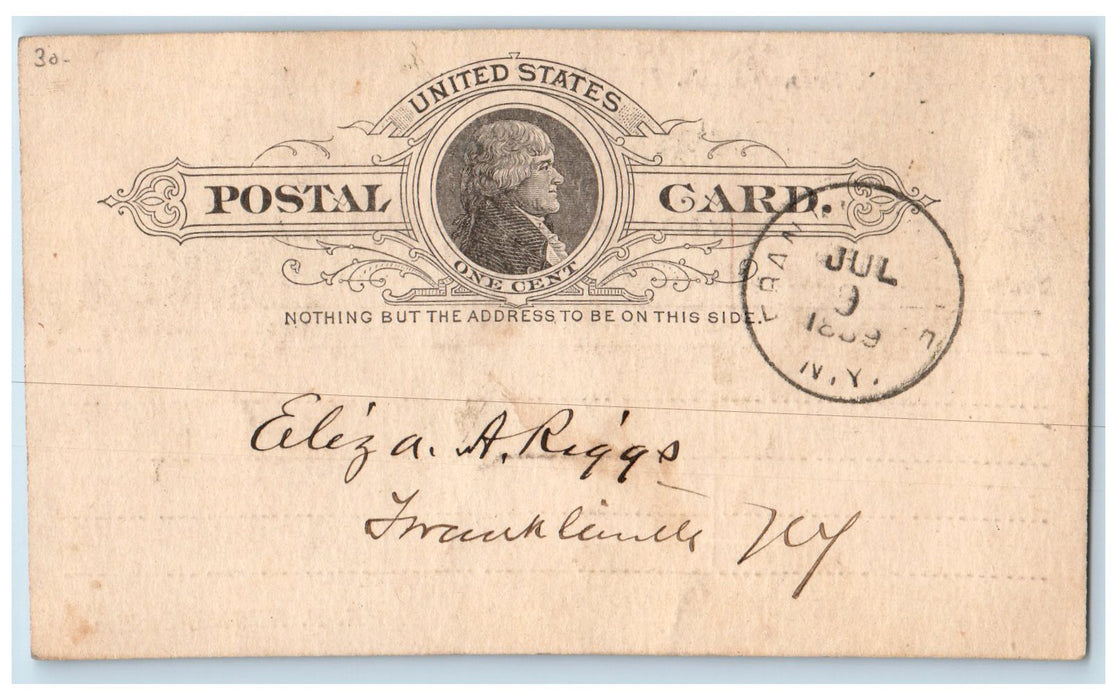 30-
UNITED STATES
POSTAL CARD.
ONE CENT
NOTHING BUT THE ADDRESS TO BE ON THIS SIDE.
JUL
9
1889
N.Y.
Eliza. A. Riggs
Franklinville NY